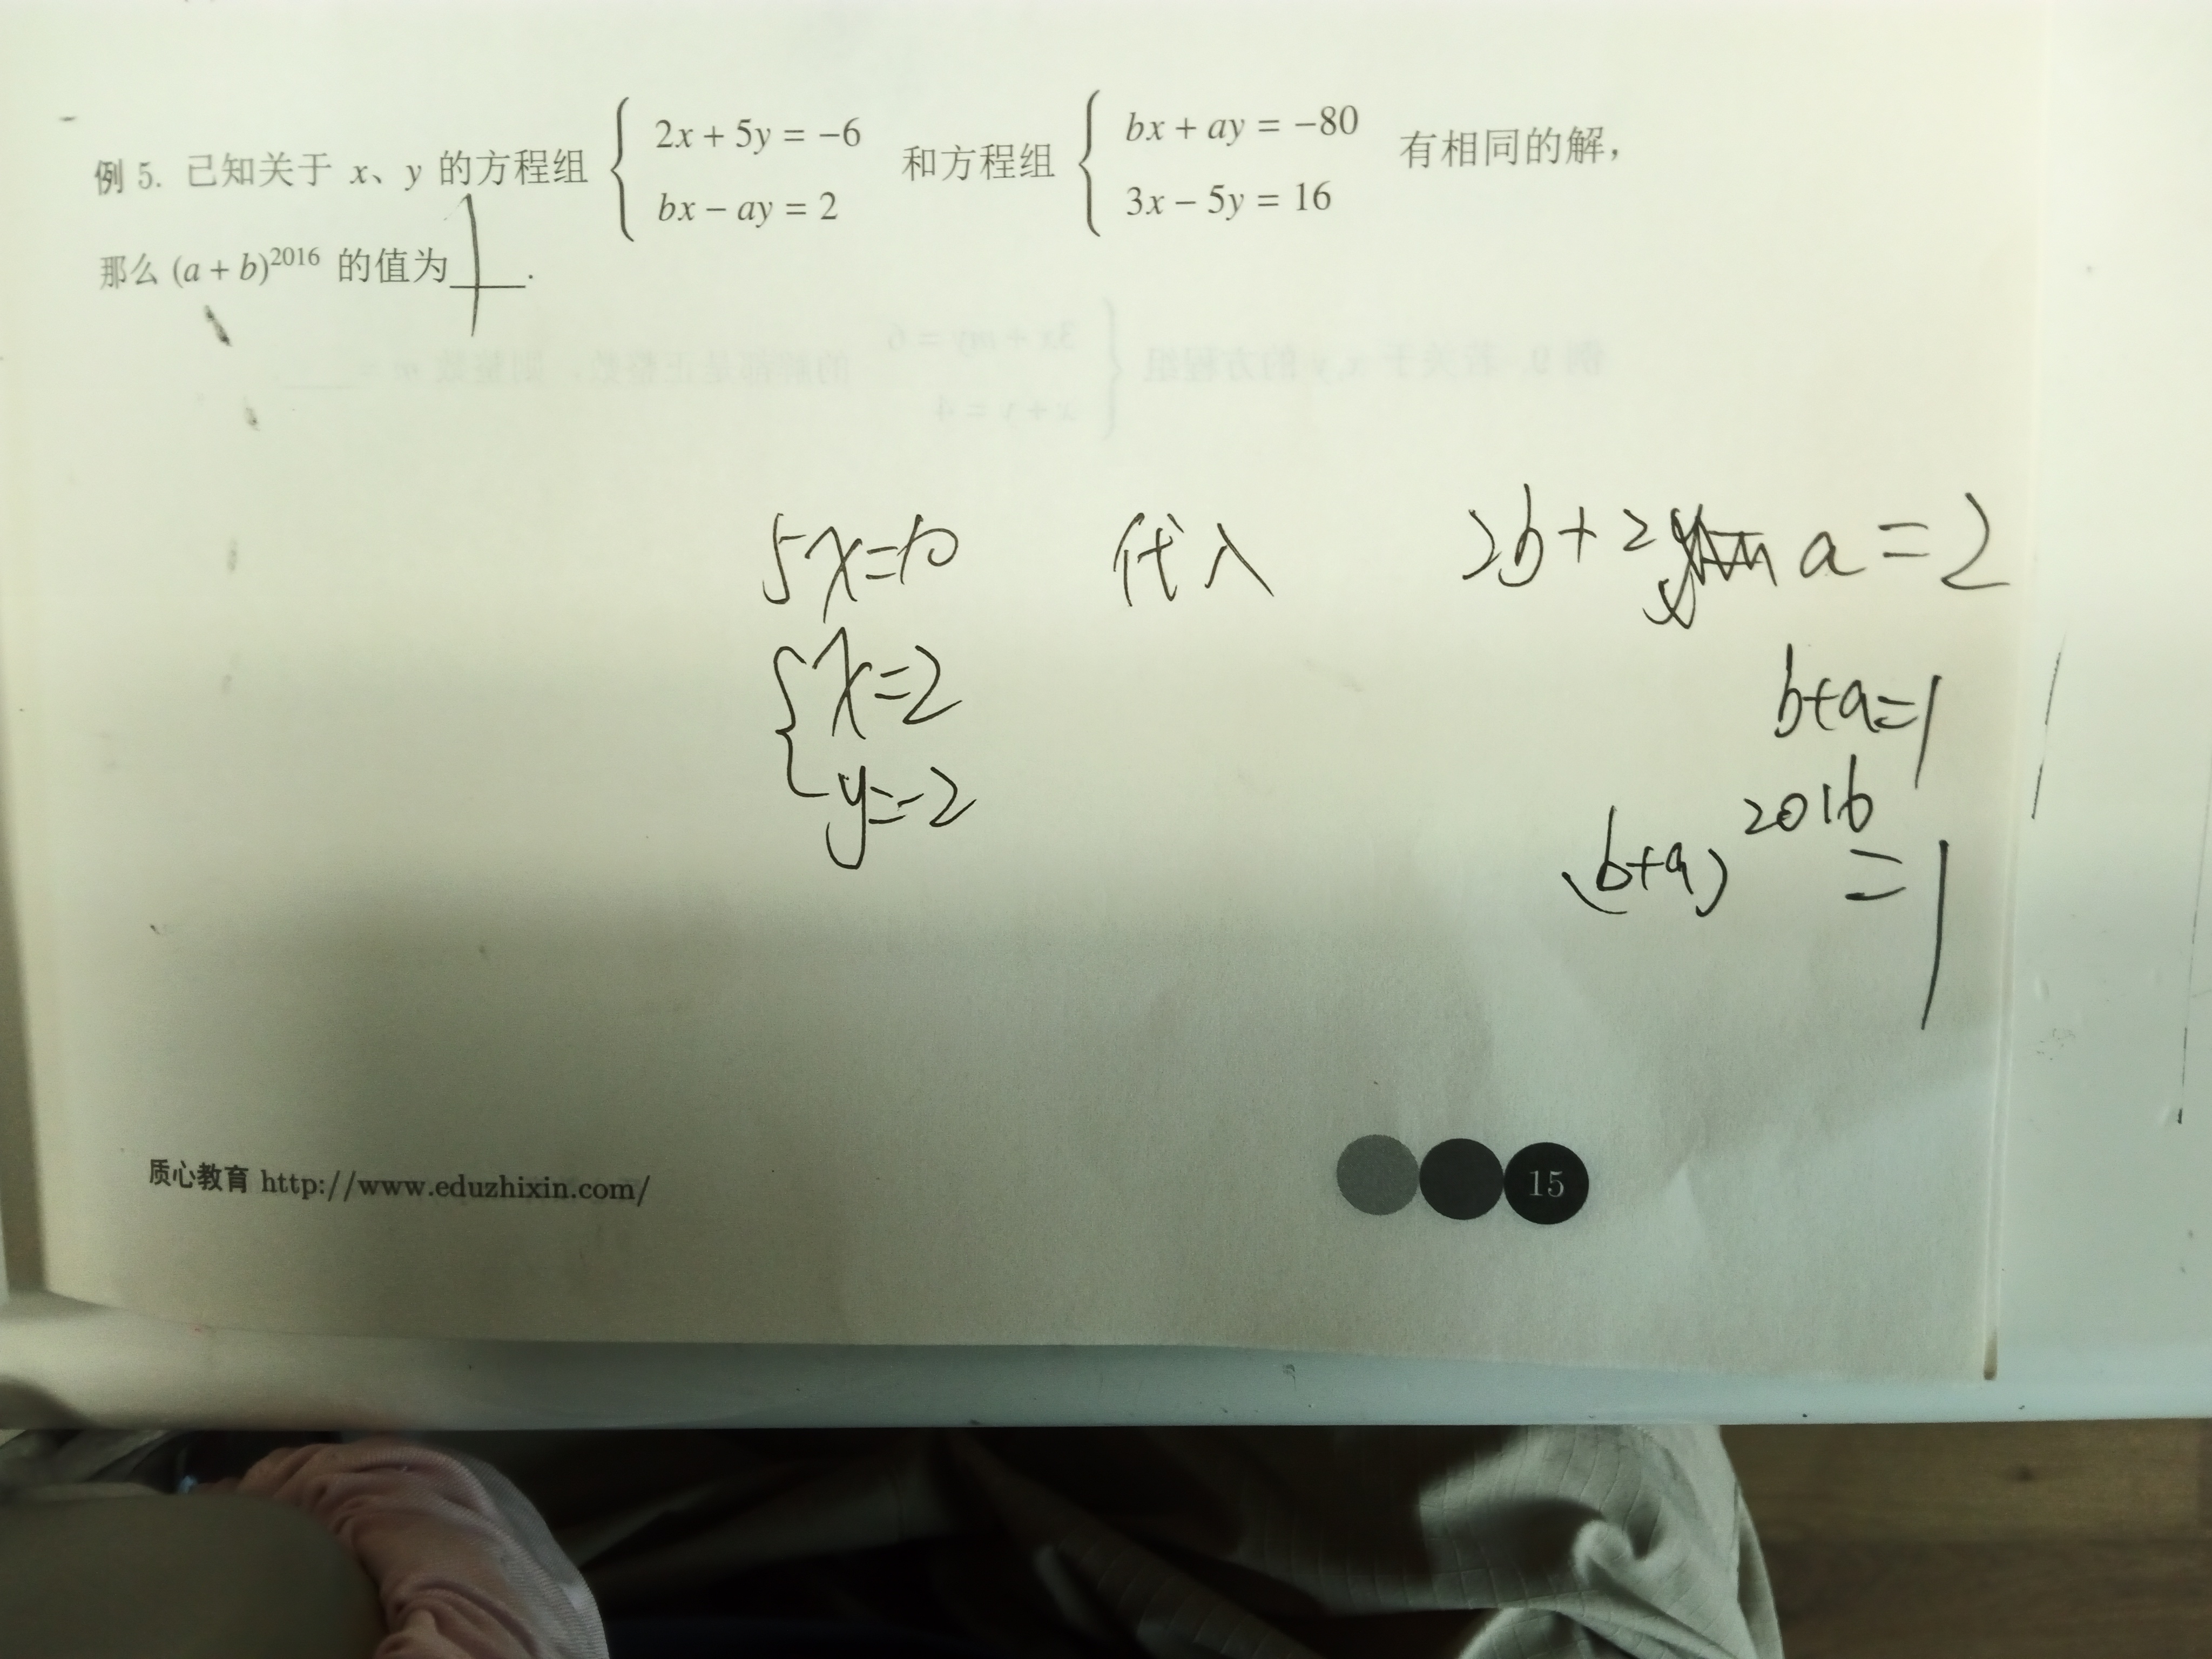 例 5. 已知关于 x、y 的方程组 { 2x + 5y = −6 bx − ay = 2 和方程组 { bx + ay = −80 3x − 5y = 16 有相同的解，
那么 (a + b)^2016 的值为 1 .
5x=10 代入 2b+2 a=2
{ x=2
y=-2
b+a=1
(b+a)^2016 =1
质心教育 http://www.eduzhixin.com/
15